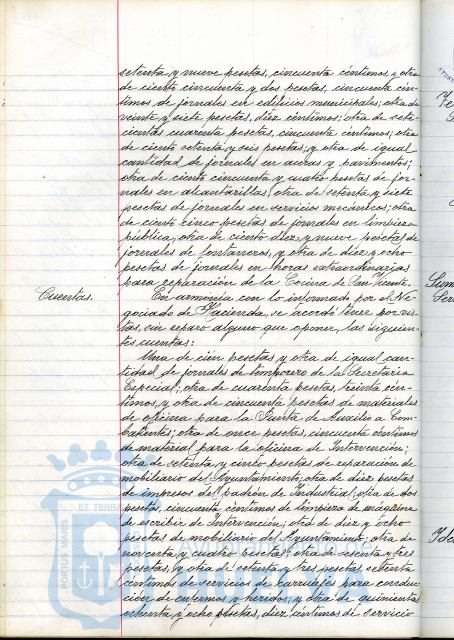 setenta y nueve pesetas, cincuenta céntimos, y otra
de ciento cincuenta y dos pesetas, cincuenta cén-
timos de jornales en edificios municipales; otra de
veinte y siete pesetas, diez céntimos; otra de sete-
cientas cuarenta pesetas, cincuenta céntimos; otra
de ciento setenta y seis pesetas; y otra de igual
cantidad de jornales en aceras y pavimentos;
otra de ciento cincuenta y cuatro pesetas de jor-
nales en alcantarillas; otra de setenta y siete
pesetas de jornales en servicios mecánicos; otra
de ciento cinco pesetas de jornales en limpieza
pública; otra de ciento diez y nueve pesetas de
jornales de fontaneros, y otra de diez y ocho
pesetas de jornales en horas extraordinarias
para reparación de la Cocina de San Vicente.
Cuentas. En armonía con lo informado por el Ne-
gociado de Hacienda, se acordó tener por vis-
tas, sin reparo alguno que oponer, las siguien-
tes cuentas:
Una de cien pesetas y otra de igual can-
tidad de jornales de temporero de la Secretaría
Especial; otra de cuarenta pesetas, treinta cén-
timos, y otra de cincuenta pesetas de materiales
de oficina para la Junta de Auxilio a Com-
batientes; otra de once pesetas, cincuenta céntimos
de material para la oficina de Intervención;
otra de setenta y cinco pesetas de reparación de
mobiliario del Ayuntamiento; otra de diez pesetas
de impresos del padrón de Industrial; otra de dos
pesetas, cincuenta céntimos de limpieza de máquina
de escribir de Intervención; otra de diez y ocho
pesetas de mobiliario del Ayuntamiento; otra de
noventa y cuatro pesetas; otra de sesenta y tres
pesetas, y otra de setenta y tres pesetas, setenta
céntimos de servicios de carruajes para conduc-
ción de enfermos y heridos; y otra de quinientas
ochenta y ocho pesetas, diez céntimos de servicio
ET TERRA
PORTUS MARIS